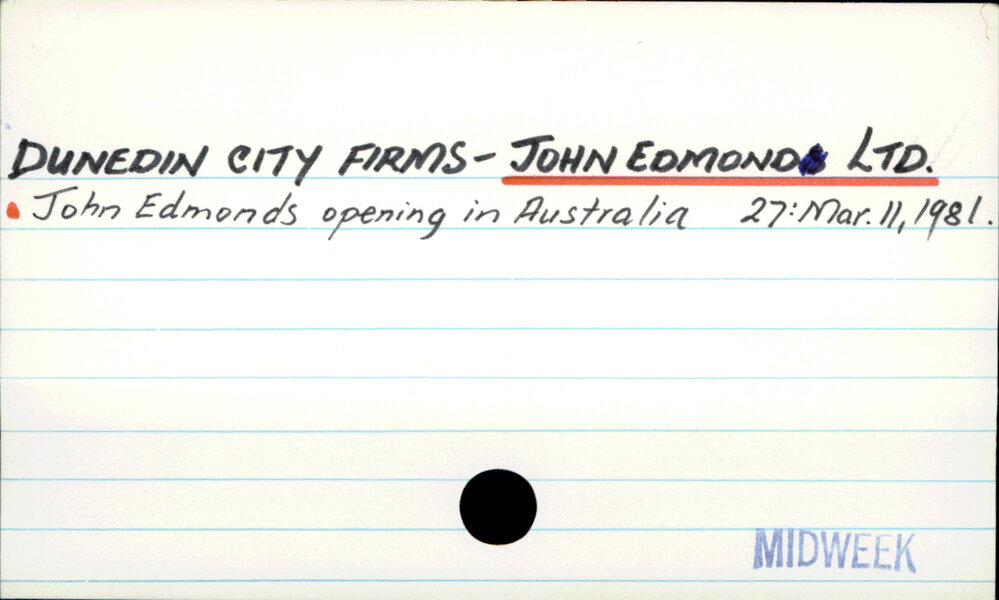 DUNEDIN CITY FIRMS - JOHN EDMONDS LTD.
John Edmonds opening in Australia 27: Mar. 11, 1981.
MIDWEEK